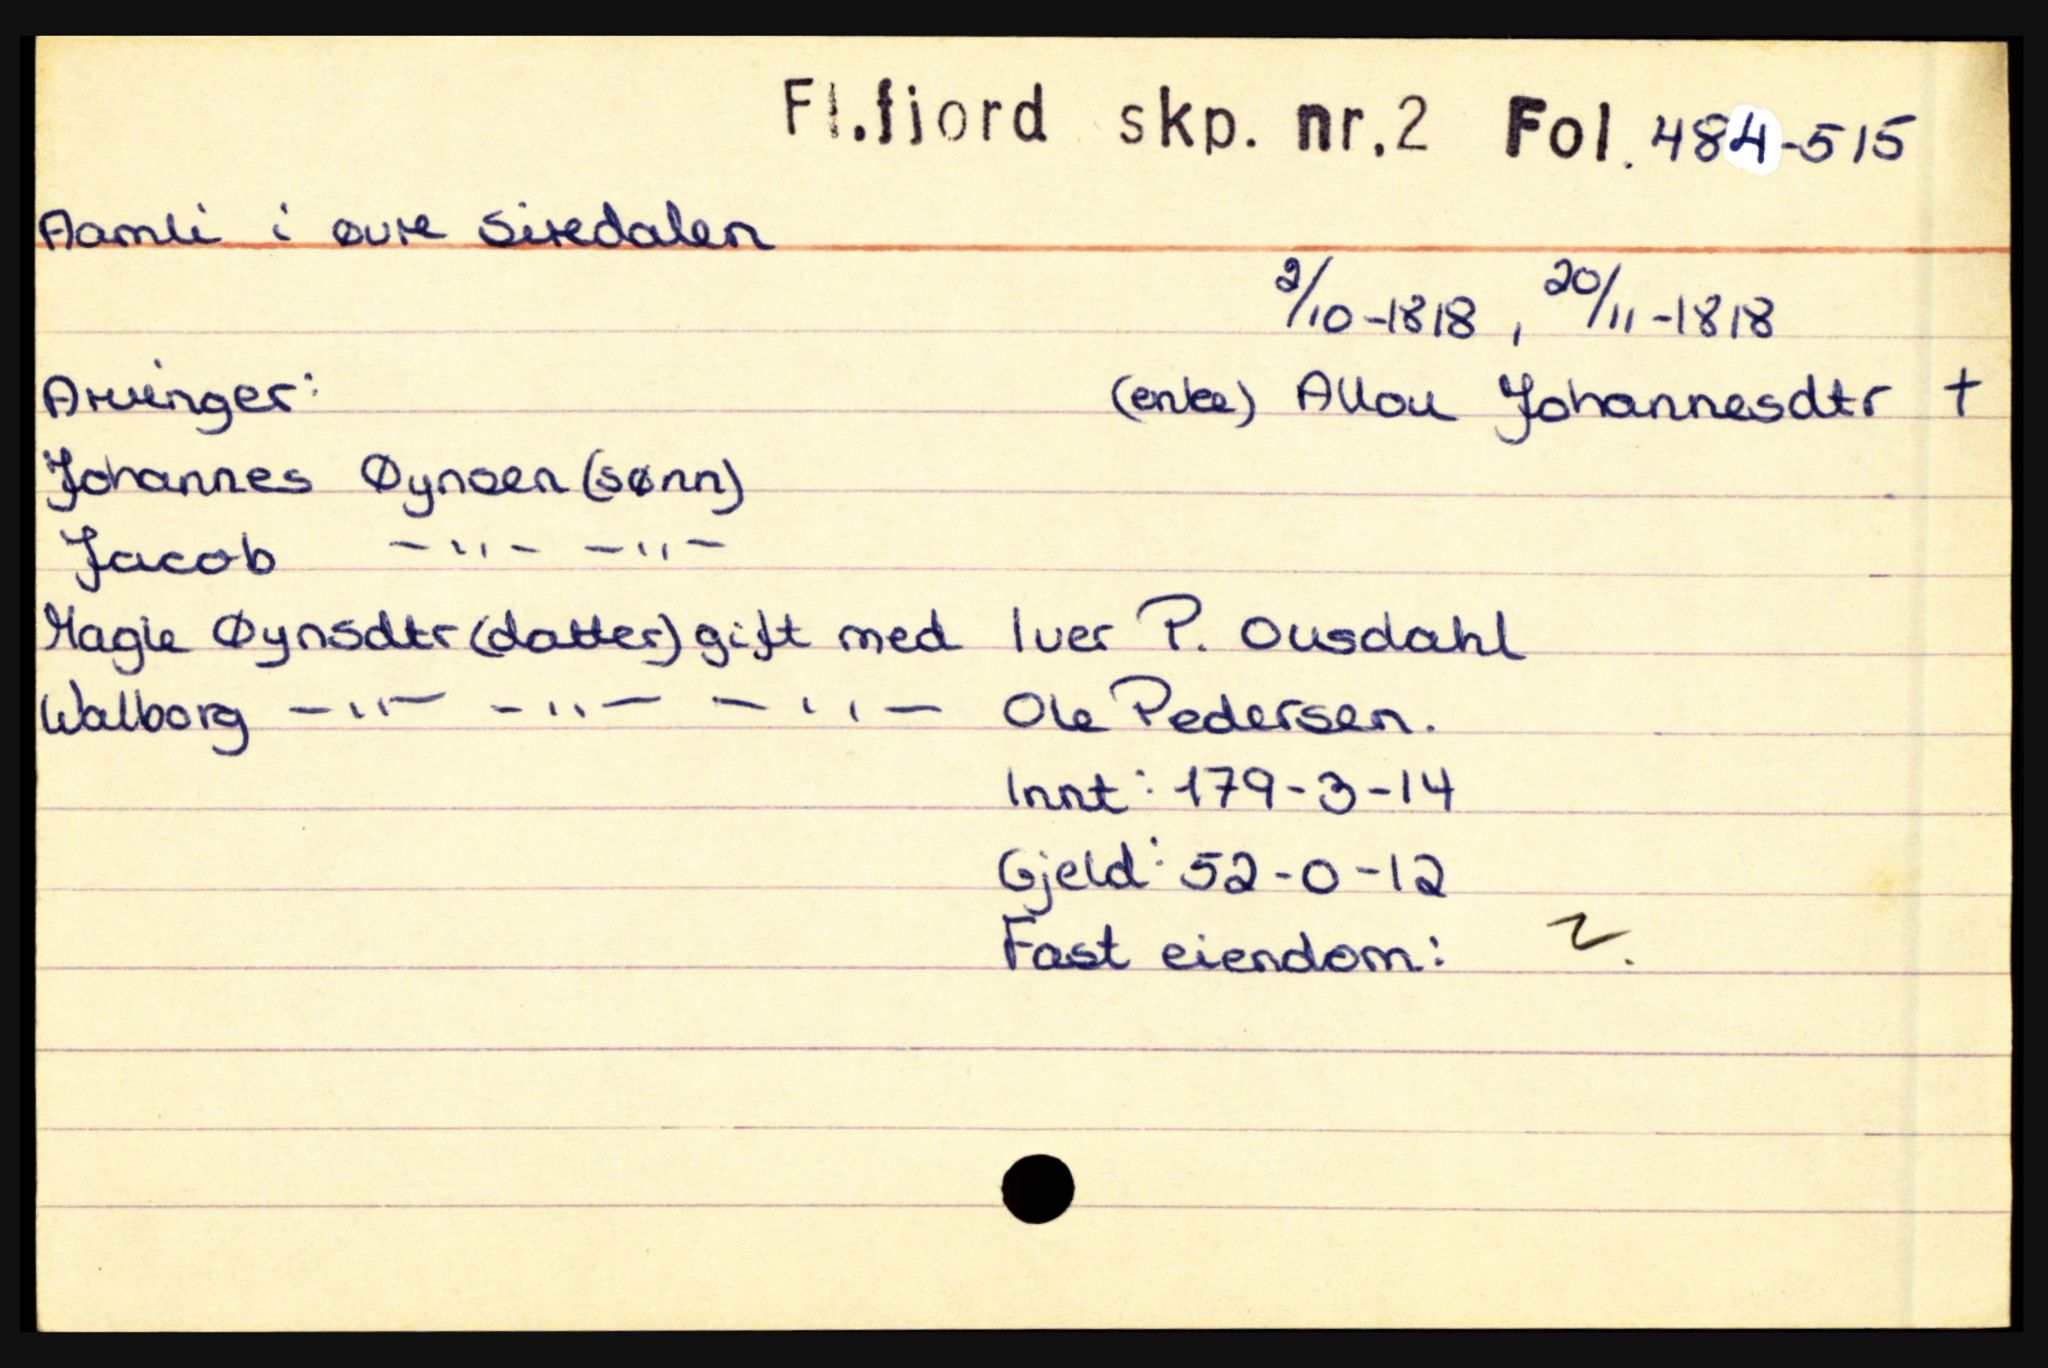 Fl.fjord skp. nr.2 Fol. 484-515
Aamli i øvre Siredalen
2/10-1818, 20/11-1818
Arvinger: (enke) Allou Johannesdtr †
Johannes Øynsen (sønn)
Jacob -"- -"-
Magle Øynsdtr (datter) gift med Iver P. Ousdahl
Walborg -"- -"- -"- Ole Pedersen.
Innt: 179-3-14
Gjeld: 52-0-12
Fast eiendom: